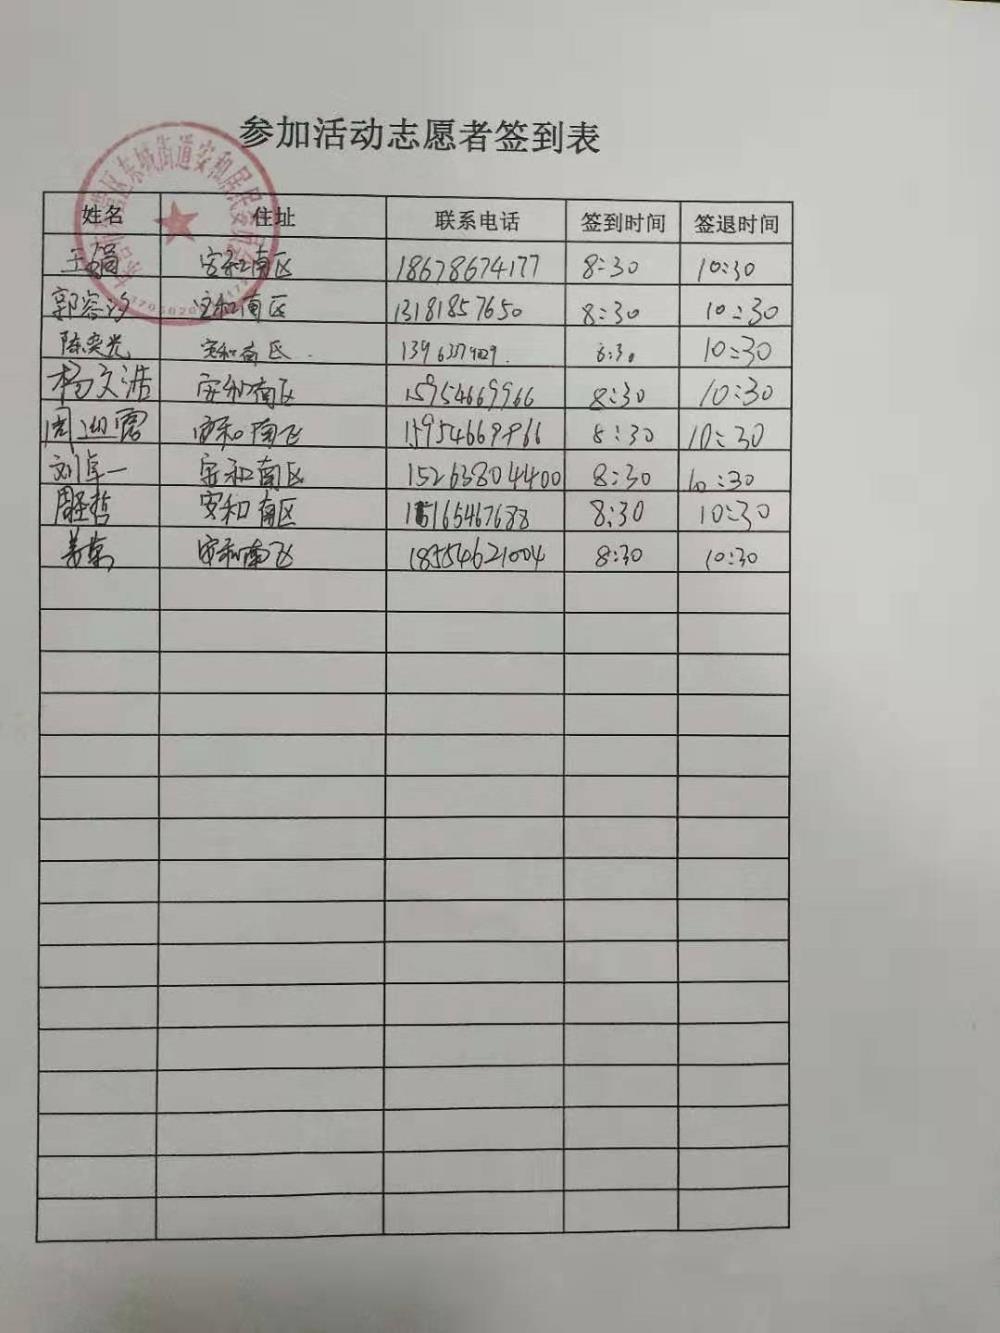 参加活动志愿者签到表
东城街道安和居民委员会
姓名 住址 联系电话 签到时间 签退时间
王娟 安和南区 18678674177 8:30 10:30
郭容汐 安和南区 13181857650 8:30 10:30
陈奕光 安和南区. 8:30 10:30
杨文浩 安和南区 15954669966 8:30 10:30
周 安和南区 8:30 10:30
刘卓一 安和南区 15263804400 8:30 10:30
安和南区 8:30 10:30
安和南区 18554621004 8:30 10:30